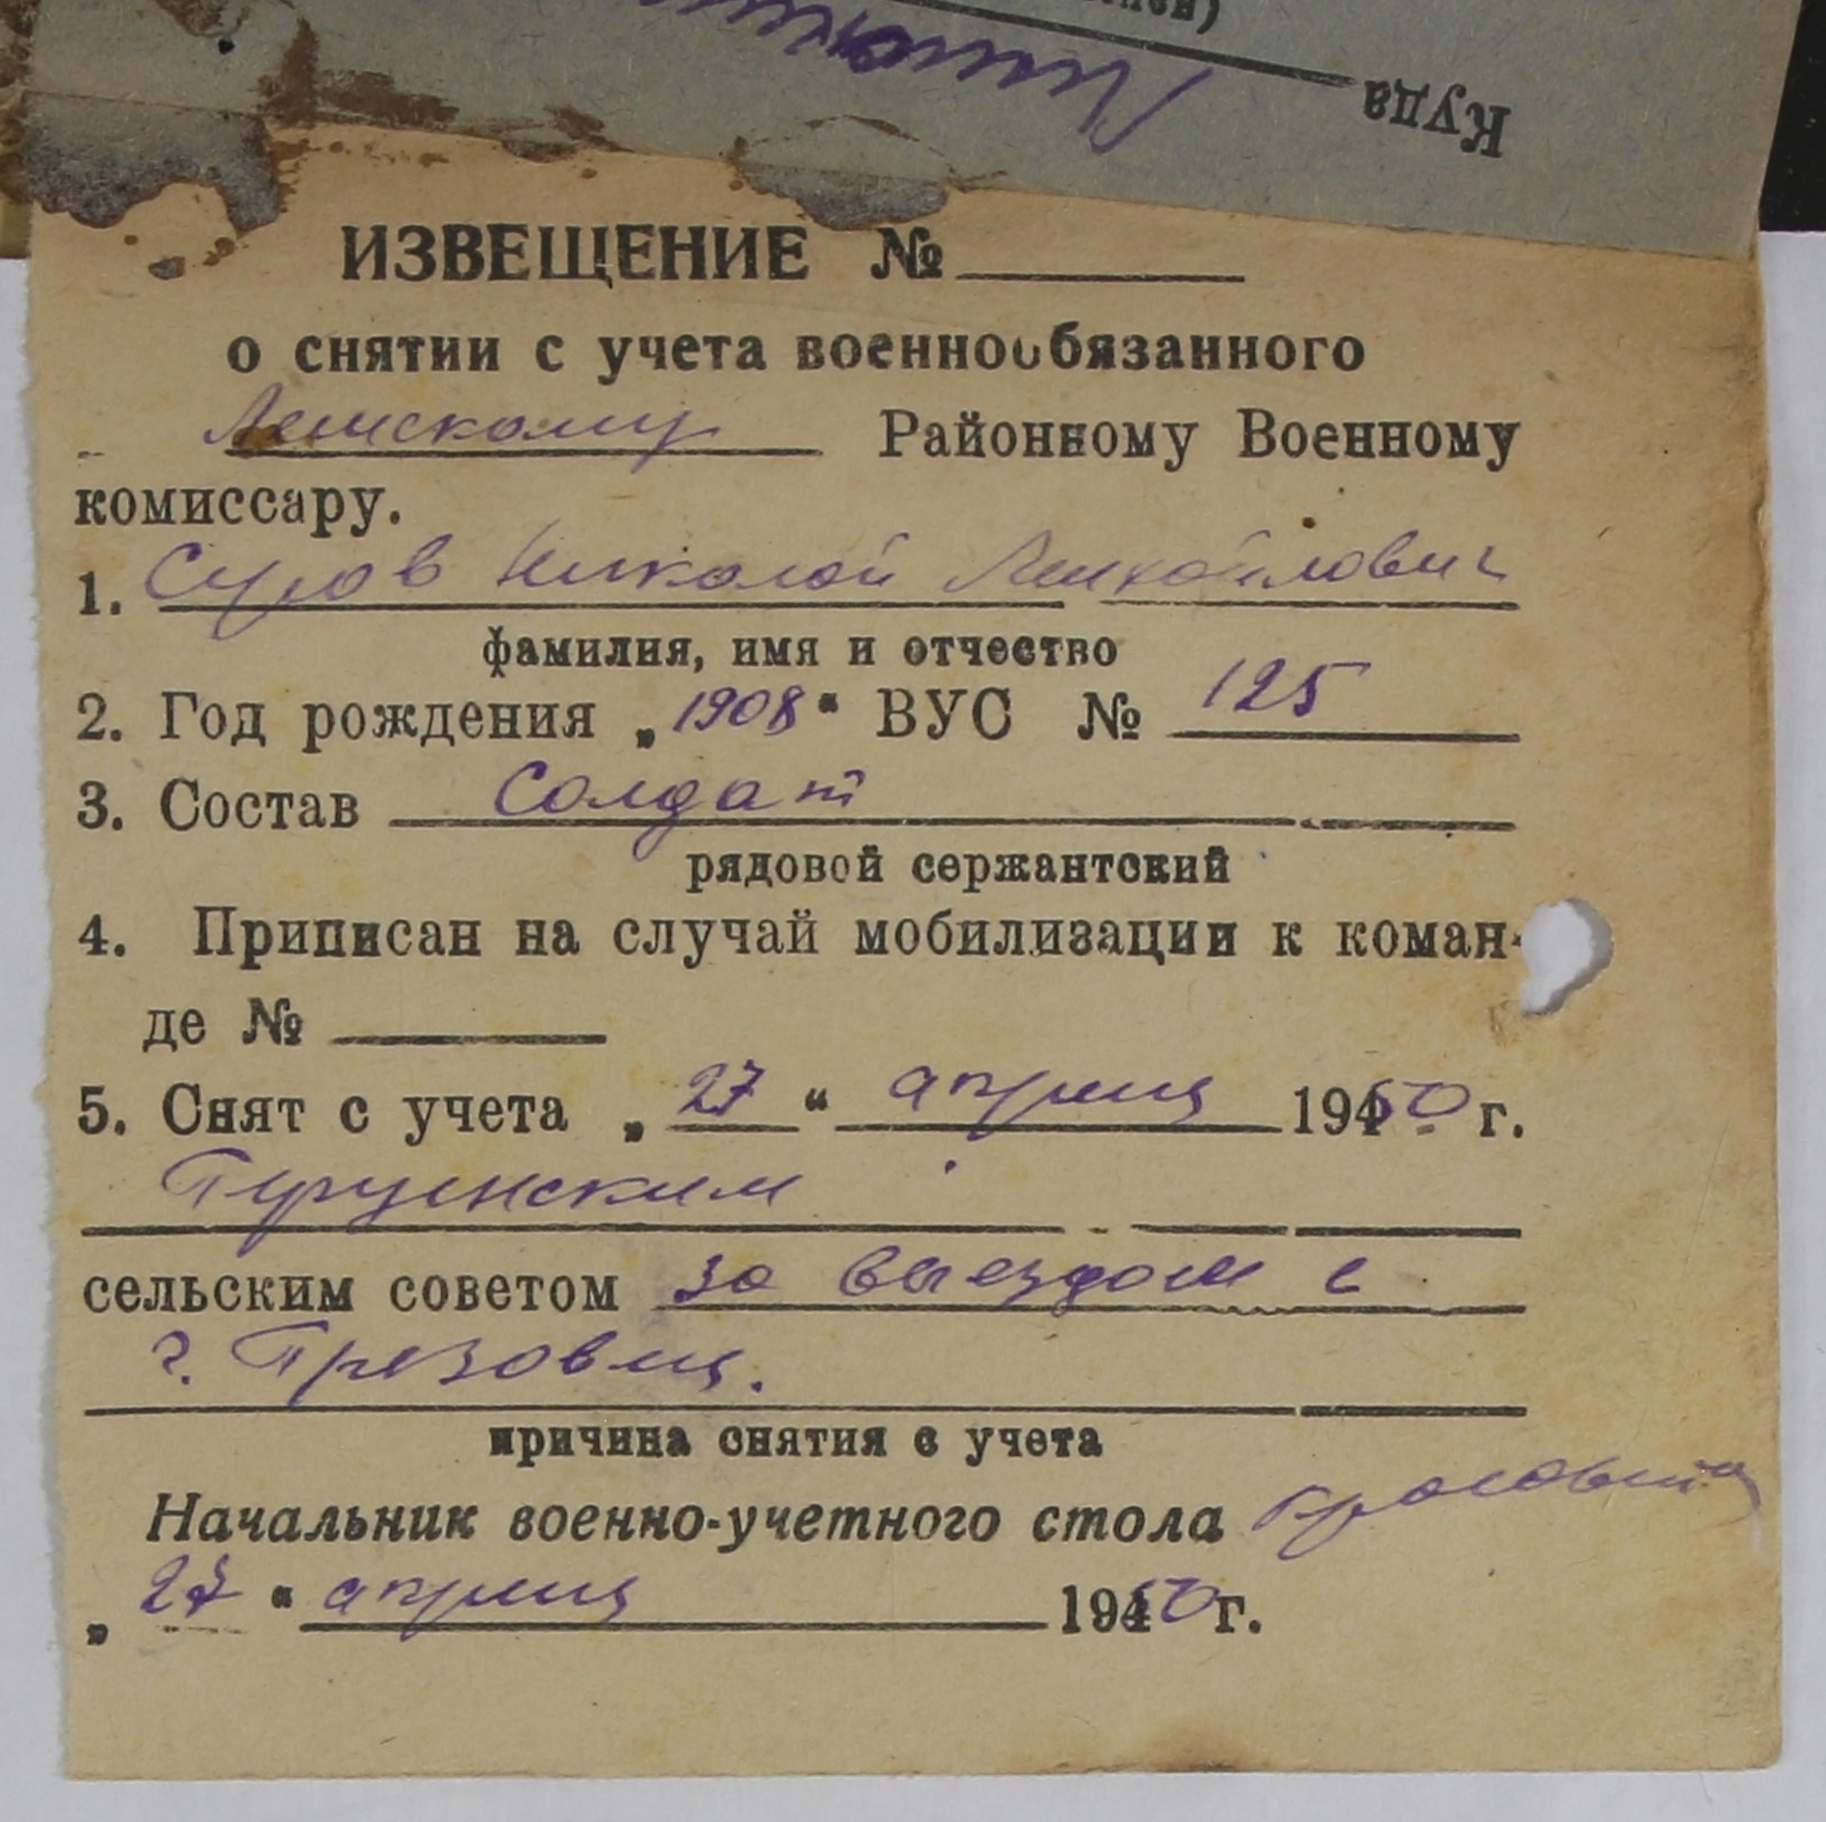 Куда
ИЗВЕЩЕНИЕ №
о снятии с учета военнообязанного
Районному Военному
комиссару.
1. Суров Николай Михайлович
фамилия, имя и отчество
2. Год рождения „1908“ ВУС № 125
3. Состав Солдат
рядовой сержантский
4. Приписан на случай мобилизации к коман-
де №
5. Снят с учета „27“ апреля 1950 г.
сельским советом за выездом в
г.
причина снятия с учета
Начальник военно-учетного стола
„27“ апреля 1950 г.